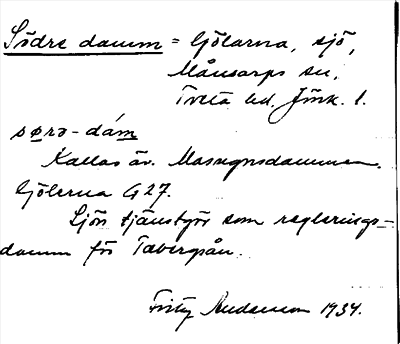 Södre damm = Gjölarna, sjö,
Månsarps sn,
Tveta hd, Jönk. l.
sørə-dám
Kallas äv. Massugnsdammen.
Gjölerna G 27.
Sjön tjänstgör som reglerings-
damm för Tabergsån.
Fritz Andersson 1934.